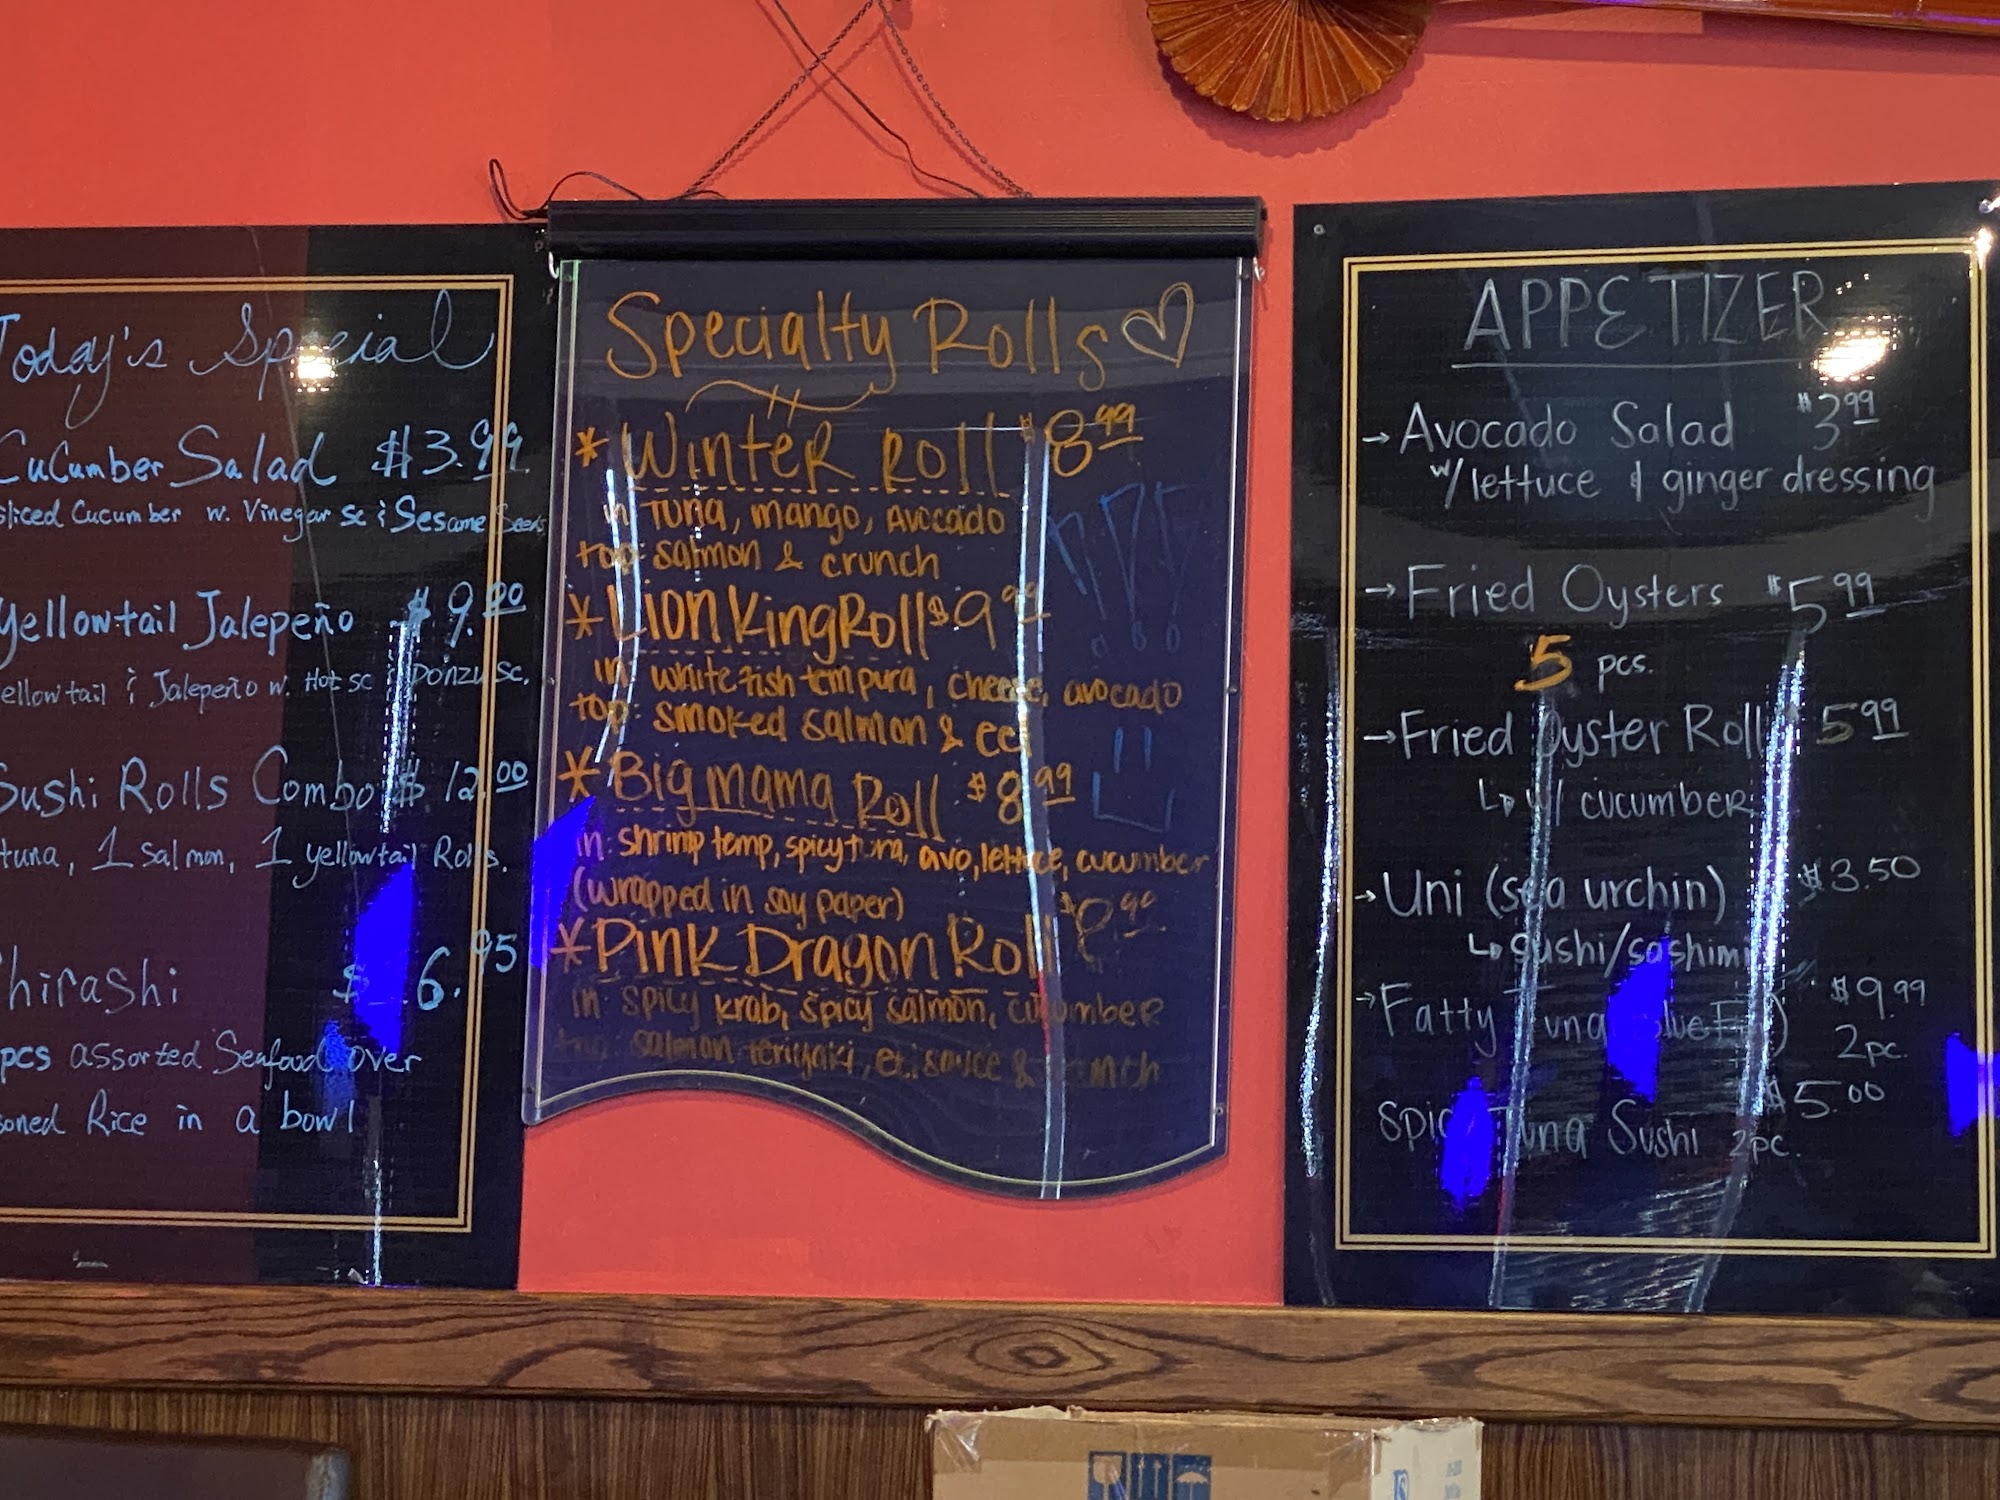 Today's Special
Cucumber Salad $3.99
sliced Cucumber w. Vinegar sc & Sesame Seeds
Yellowtail Jalepeño $9.00
ellowtail & Jalepeño w. Hot sc & Ponzu sc.
Sushi Rolls Combo $12.00
tuna, 1 salmon, 1 yellowtail Rolls.
hirashi $ 6.95
pcs assorted Seafood over
soned Rice in a bowl
Specialty Rolls
* Winter Roll $8.99
in: tuna, mango, avocado
top: salmon & crunch
* Lion King Roll $9.99
in: white fish tempura, cheese, avocado
top: smoked salmon & eel
* Big mama Roll $8.99
in: shrimp temp, spicy tuna, avo, lettuce, cucumber
(wrapped in soy paper)
* Pink Dragon Roll $8.99
in: spicy krab, spicy salmon, cucumber
top: salmon teriyaki, el sauce & crunch
APPETIZER
→ Avocado Salad $3.99
w/ lettuce & ginger dressing
→ Fried Oysters $5.99
5 pcs.
→ Fried Oyster Roll 5.99
↳ w/ cucumber
→ Uni (sea urchin) $3.50
↳ sushi/sashimi
→ Fatty Tuna (Blue Fin) $9.99
2pc.
Spicy Tuna Sushi 2pc. $5.00